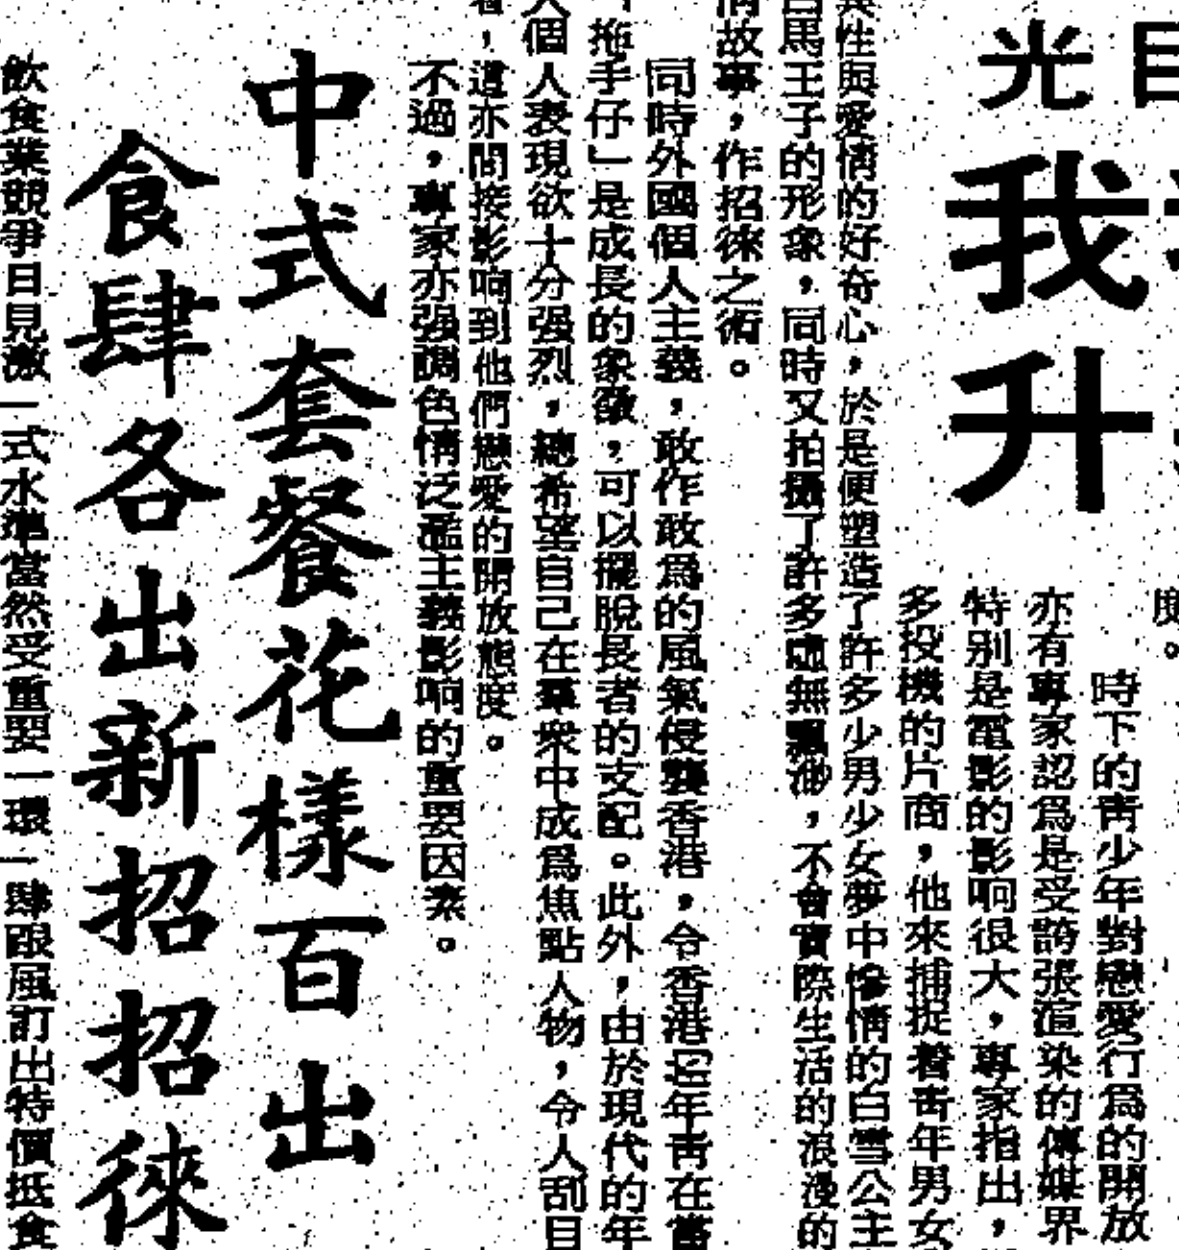 光
我
升
度。
時下的靑少年對戀愛行爲的開放
亦有專家認爲是受誇張渲染的傳媒界
特別是電影的影响很大，專家指出，
多投機的片商，他來捕捉着靑年男女
異性與愛情的好奇心，於是便塑造了許多少男少女夢中慘情的白雪公主
白馬王子的形象，同時又拍攝了許多虛無飄渺，不會實際生活的浪漫的
情故事，作招徠之術。
同時外國個人主義，敢作敢爲的風氣侵襲香港，令香港年靑在當
「拖手仔」是成長的象徵，可以擺脫長者的支配。此外，由於現代的年
人個人表現欲十分强烈，總希望自己在羣衆中成爲焦點人物，令人刮目
看，這亦間接影响到他們戀愛的開放態度。
不過，專家亦强調色情泛濫主義影响的重要因素。
中式套餐花樣百出
食肆各出新招招徠
飲食業競爭日見激一式水準當然受重要一環一肆跟風訂出特價抵食